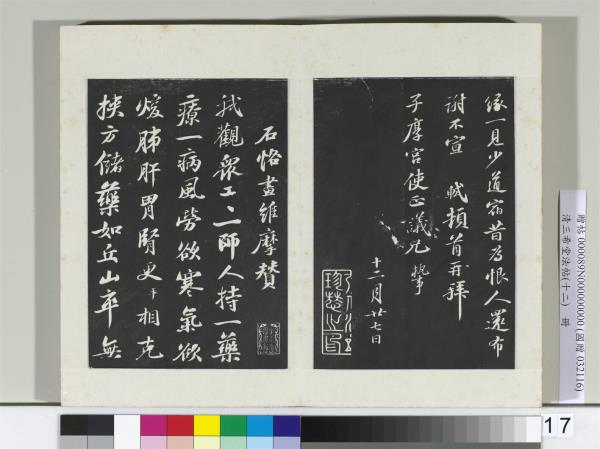 緣一見少道宿昔為恨人還布
謝不宣 軾頓首再拜
子厚宮使正議兄 執事
十二月廿七日
石恪畫維摩贊
我觀眾工〻一師人持一藥
療一病風勞欲寒氣欲
煖肺肝胃腎更相克
挾方儲藥如丘山卒無
贈帖 000089N000000000 (國贈 032116)
清三希堂法帖(十二) 冊
17